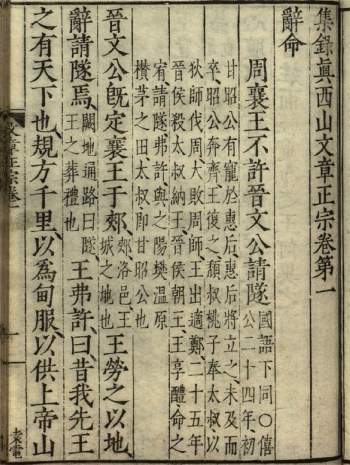 集錄眞西山文章正宗卷第一
辭命
周襄王不許晉文公請隧
國語下同○僖
公二十四年初
甘昭公有寵於惠后惠后將立之未及而
卒昭公奔齊王復之頹叔桃子奉太叔以
狄師伐周大敗周師王出適鄭二十五年
晉侯殺太叔納王晉侯朝王王享醴命之
宥請隧弗許與之陽樊溫原
欑茅之田太叔即甘昭公也
晉文公既定襄王于郟
郟洛邑王
城之地也
王勞之以地
辭請隧焉
闕地通路曰隧
王之葬禮也
王弗許曰昔我先王
之有天下也規方千里以為甸服以供上帝山
文章正宗卷一